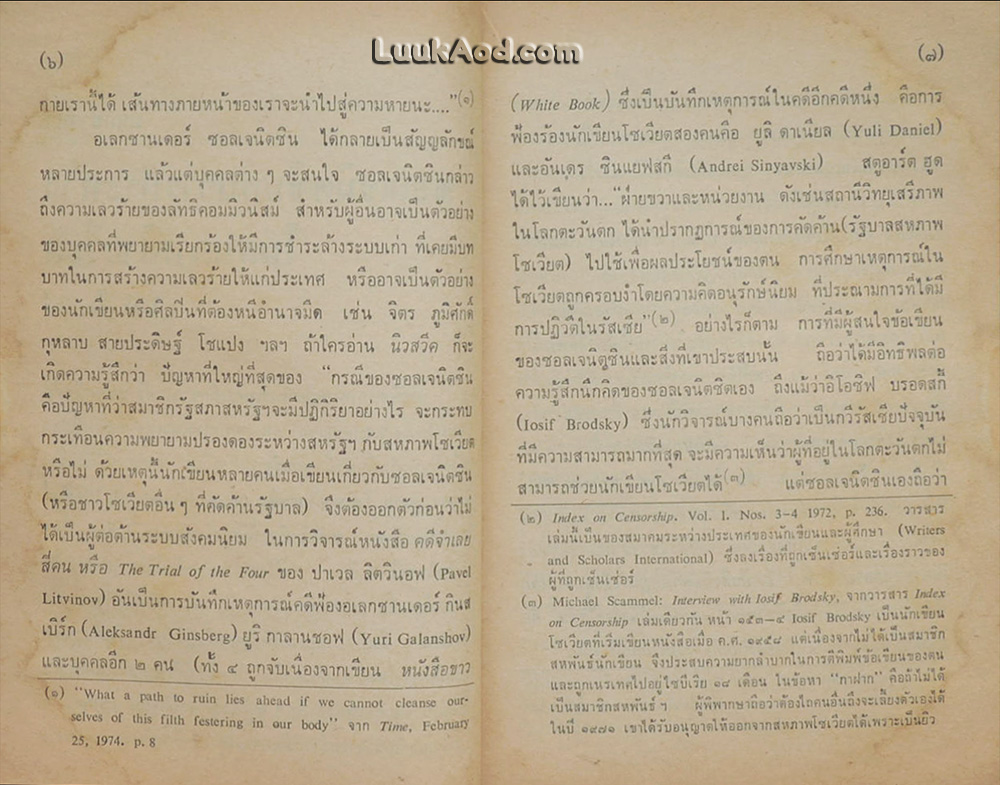 LuukAod.com
(๖)
กายเรานี้ได้ เส้นทางภายหน้าของเราจะนำไปสู่ความหายนะ....”(๑)
อเลกซานเดอร์ ซอลเจนิตซิน ได้กลายเป็นสัญญลักขณ์
หลายประการ แล้วแต่บุคคลต่าง ๆ จะสนใจ ซอลเจนิตซินกล่าว
ถึงความเลวร้ายของลัทธิคอมมิวนิสม์ สำหรับผู้อื่นอาจเป็นตัวอย่าง
ของบุคคลที่พยายามเรียกร้องให้มีการชำระล้างระบบเก่า ที่เคยมีบท
บาทในการสร้างความเลวร้ายให้แก่ประเทศ หรืออาจเป็นตัวอย่าง
ของนักเขียนหรือศิลปินที่ต้องหนีอำนาจมืด เช่น จิตร ภูมิศักดิ์
กุหลาบ สายประดิษฐ์ โชแปง ฯลฯ ถ้าใครอ่าน นิวสวีค ก็จะ
เกิดความรู้สึกว่า ปัญหาที่ใหญ่ที่สุดของ “กรณีของซอลเจนิตซิน
คือปัญหาที่ว่าสมาชิกรัฐสภาสหรัฐฯจะมีปฏิกิริยาอย่างไร จะกระทบ
กระเทือนความพยายามปรองดองระหว่างสหรัฐฯ กับสหภาพโซเวียต
หรือไม่ ด้วยเหตุนี้นักเขียนหลายคนเมื่อเขียนเกี่ยวกับซอลเจนิตซิน
(หรือชาวโซเวียตอื่น ๆ ที่คัดค้านรัฐบาล) จึงต้องออกตัวก่อนว่าไม่
ได้เป็นผู้ต่อต้านระบบสังคมนิยม ในการวิจารณ์หนังสือ คดีจำเลย
สี่คน หรือ The Trial of the Four ของ ปาเวล ลิตวินอฟ (Pavel
Litvinov) อันเป็นการบันทึกเหตุการณ์คดีฟ้องอเลกซานเดอร์ กินส
เบิร์ก (Aleksandr Ginsberg) ยูริ กาลานชอฟ (Yuri Galanshov)
และบุคคลอีก ๒ คน (ทั้ง ๔ ถูกจับเนื่องจากเขียน หนังสือขาว
(๑) “What a path to ruin lies ahead if we cannot cleanse our-
selves of this filth festering in our body” จาก Time, February
25, 1974. p. 8
(๗)
(White Book) ซึ่งเป็นบันทึกเหตุการณ์ในคดีอีกคดีหนึ่ง คือการ
ฟ้องร้องนักเขียนโซเวียตสองคนคือ ยูลิ ดาเนียล (Yuli Daniel)
และอันเดร ซินแยฟสกี (Andrei Sinyavski) สตูอาร์ต ฮูด
ได้ไว้เขียนว่า...“ฝ่ายขวาและหน่วยงาน ดังเช่นสถานีวิทยุเสรีภาพ
ในโลกตะวันตก ได้นำปรากฏการณ์ของการคัดค้าน(รัฐบาลสหภาพ
โซเวียต) ไปใช้เพื่อผลประโยชน์ของตน การศึกษาเหตุการณ์ใน
โซเวียตถูกครอบงำโดยความคิดอนุรักษ์นิยม ที่ประณามการที่ได้มี
การปฏิวัติในรัสเซีย”(๒) อย่างไรก็ตาม การที่มีผู้สนใจข้อเขียน
ของซอลเจนิตซินและสิ่งที่เขาประสบนั้น ถือว่าได้มีอิทธิพลต่อ
ความรู้สึกนึกคิดของซอลเจนิตซิตเอง ถึงแม้ว่าอิโอซิฟ บรอดสกี้
(Iosif Brodsky) ซึ่งนักวิจารณ์บางคนถือว่าเป็นกวีรัสเซียปัจจุบัน
ที่มีความสามารถมากที่สุด จะมีความเห็นว่าผู้ที่อยู่ในโลกตะวันตกไม่
สามารถช่วยนักเขียนโซเวียตได้(๓) แต่ซอลเจนิตซินเองถือว่า
(๒) Index on Censorship. Vol. I. Nos. 3–4 1972, p. 236. วารสาร
เล่มนี้เป็นของสมาคมระหว่างประเทศของนักเขียนและผู้ศึกษา (Writers
and Scholars International) ซึ่งลงเรื่องที่ถูกเซ็นเซอร์และเรื่องราวของ
ผู้ที่ถูกเซ็นเซอร์
(๓) Michael Scammel: Interview with Iosif Brodsky, จากวารสาร Index
on Censorship เล่มเดียวกัน หน้า ๑๕๓–๔ Iosif Brodsky เป็นนักเขียน
โซเวียตที่เริ่มเขียนหนังสือเมื่อ ค.ศ. ๑๙๕๘ แต่เนื่องจากไม่ได้เป็นสมาชิก
สหพันธ์นักเขียน จึงประสบความยากลำบากในการตีพิมพ์ข้อเขียนของตน
และถูกเนรเทศไปอยู่ไซบีเรีย ๑๘ เดือน ในข้อหา “กาฝาก” คือถ้าไม่ได้
เป็นสมาชิกสหพันธ์ ฯ ผู้พิพากษาถือว่าต้องไถคนอื่นถึงจะเลี้ยงตัวเองได้
ในปี ๑๙๗๑ เขาได้รับอนุญาตให้ออกจากสหภาพโซเวียตได้เพราะเป็นยิว